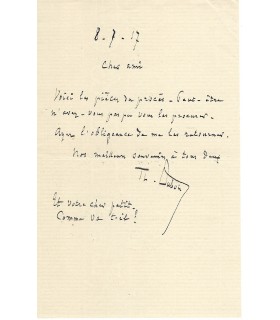 8-7-17
Cher ami
Voici les pièces du procès - Peut-être
n'avez-vous pas pu vous les procurer.
Ayez l'obligeance de me les retourner.
Nos meilleurs souvenirs à tous deux
Th. Dubois
Et votre cher petit.
Comme va-t-il!